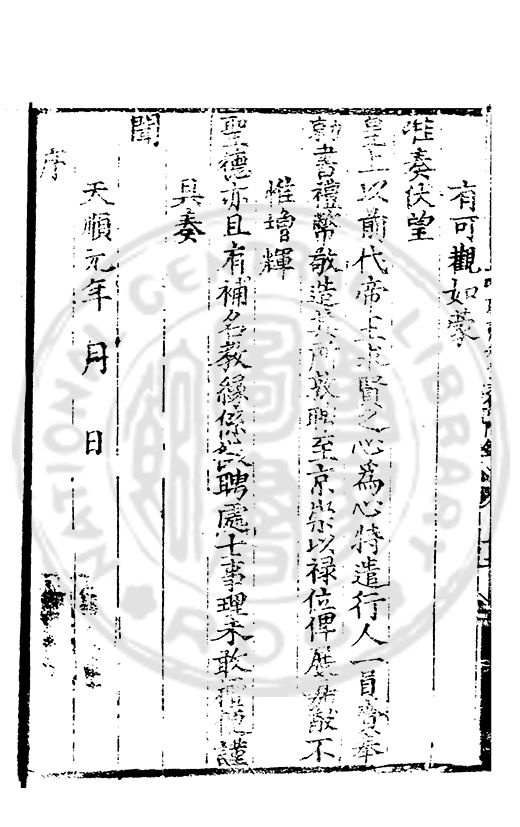 有可觀如蒙
准奏伏望
皇上以前代帝王求賢之心為心特遣行人一員賫奉
勅書禮幣敬造其敦聘至京崇以祿位俾展猷不
惟增輝
聖德亦且有補名教緣係聘處士事理未敢擅便謹
具奏
聞
天順元年 月 日
序